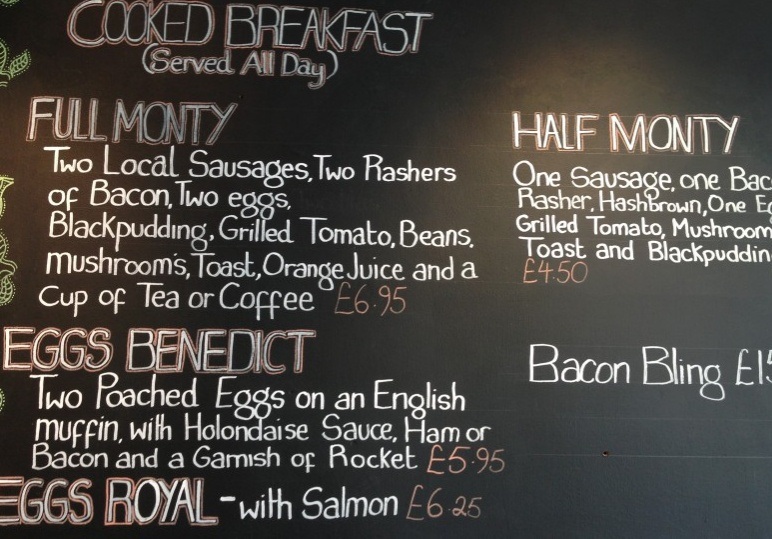 COOKED BREAKFAST
(Served All Day)
FULL MONTY
Two Local Sausages, Two Rashers
of Bacon, Two eggs,
Blackpudding, Grilled Tomato, Beans,
mushroom's, Toast, Orange Juice and a
Cup of Tea or Coffee £6.95
EGGS BENEDICT
Two Poached Eggs on an English
muffin, with Holondaise Sauce, Ham or
Bacon and a Garnish of Rocket £5.95
EGGS ROYAL - with Salmon £6.25
HALF MONTY
One Sausage, one Bac
Rasher, Hashbrown, One Eg
Grilled Tomato, Mushroom
Toast and Blackpuddin
£4.50
Bacon Bling £15